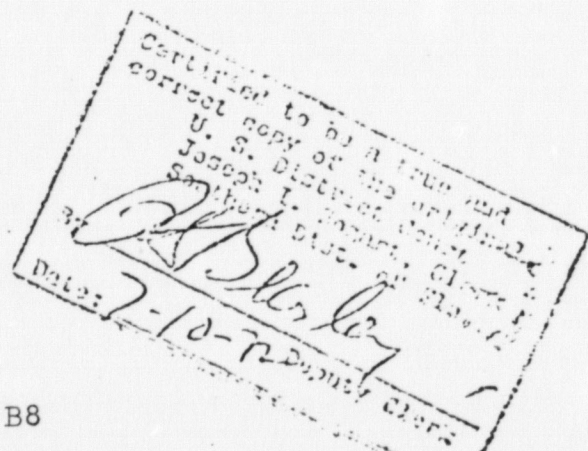 Certified to be a true and
correct copy of the original
U. S. District Court
Joseph I. Bogart, Clerk
Southern Dist. of Florida
By
Date: 7-10-72 Deputy Clerk
B8